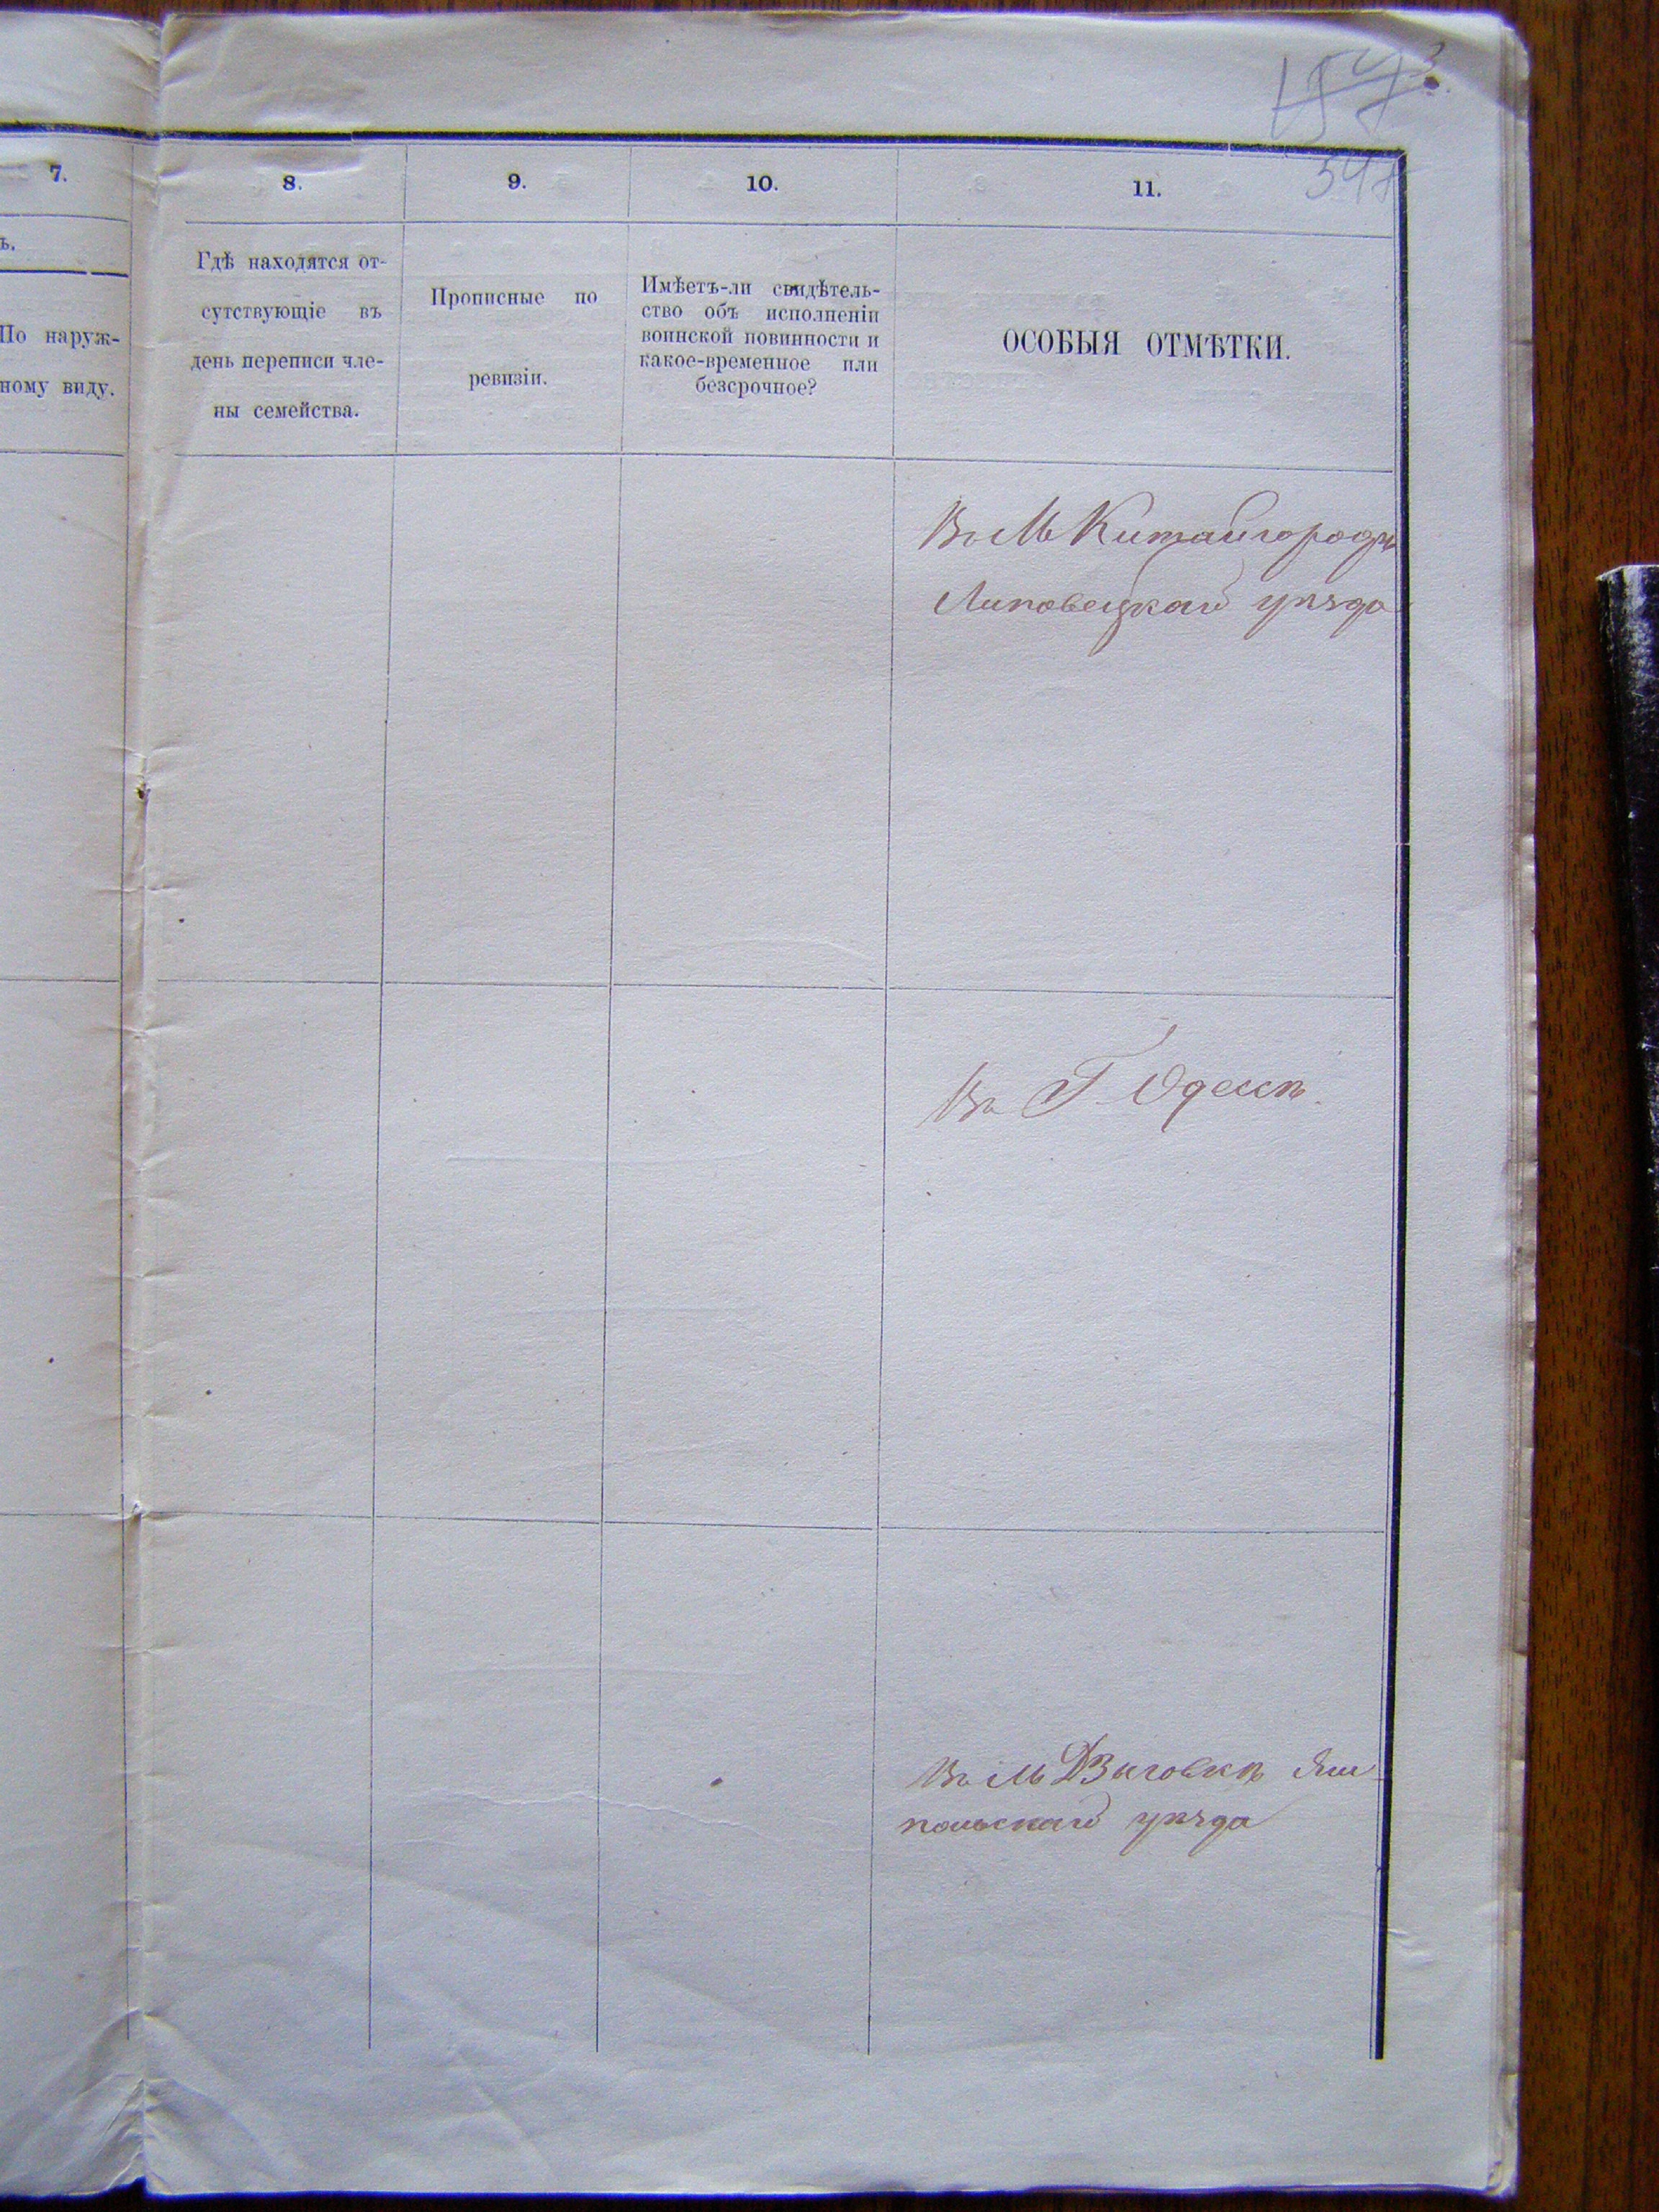 7.
8.
9.
10.
11.
548
ъ.
По наруж-
ному виду.
Гдѣ находятся от-
сутствующіе въ
день переписи чле-
ны семейства.
Прописные по
ревизіи.
Имѣетъ-ли свидѣтель-
ство объ исполненіи
воинской повинности и
какое-временное или
безсрочное?
ОСОБЫЯ ОТМѢТКИ.
Въ М Китайгородѣ
Липовецкаго уѣзда
Въ Г. Одессѣ.
Въ М Дзыговкѣ Ям
польскаго уѣзда